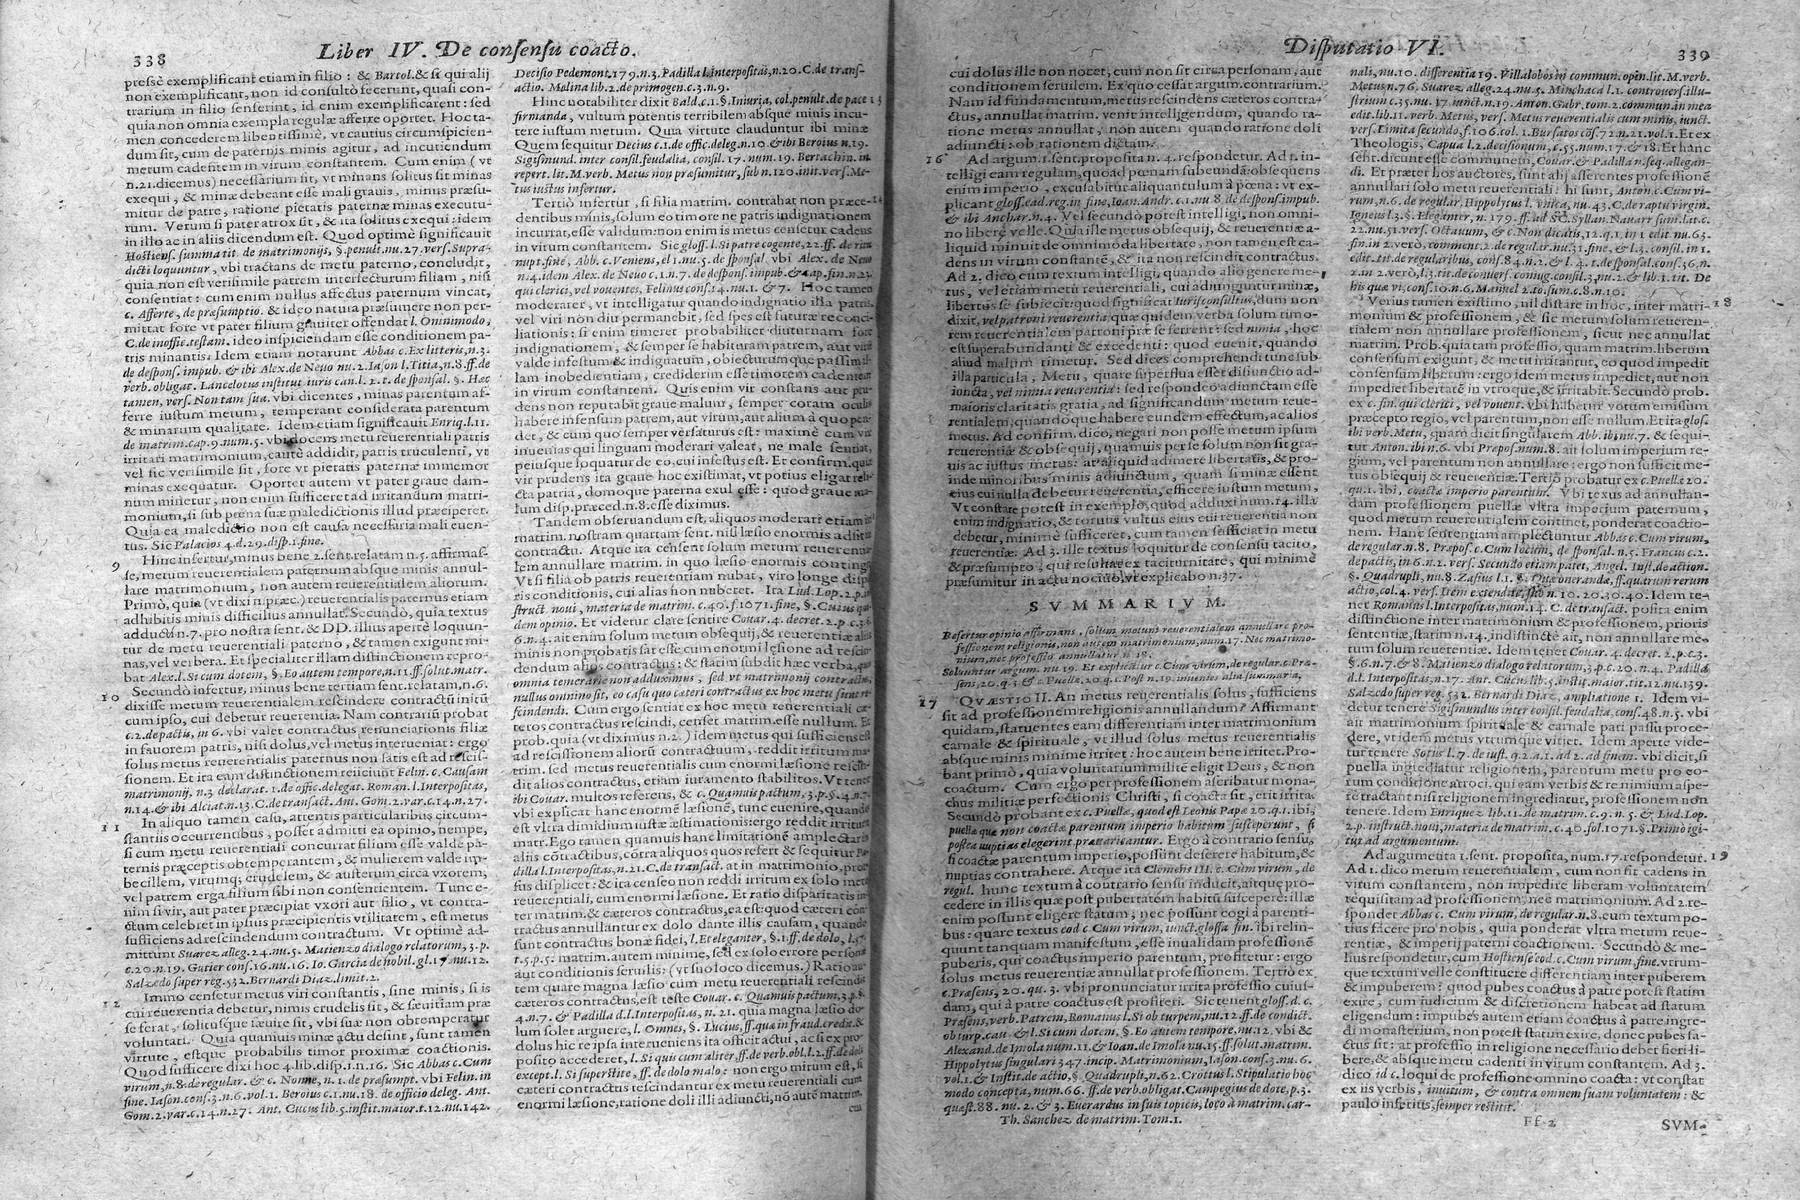 338
Liber IV. De consensu coacto.
pressè exemplificant etiam in filio : & Bartol. & si qui alij
non exemplificant, non id consultò fecerunt, quasi con-
trarium in filio senserint, id enim exemplificarent : sed
quia non omnia exempla regulæ afferre oportet. Hoc ta-
men concederem libentissimè, vt cautius circumspicien-
dum sit, cum de paternis minis agitur, ad incutiendum
metum cadentem in virum constantem. Cum enim ( vt
n.21. dicemus) necessarium sit, vt minans solitus sit minas
exequi, & minæ debeant esse mali grauis, minus præsu-
mitur de patre, ratione pietatis paternæ minas executu-
rum. Verum si pater atrox sit, & ita solitus exequi : idem
in illo ac in aliis dicendum est. Quod optimè significauit
Hostiens. summa tit. de matrimonijs, §. penult. nu.27. vers. Supra-
dicti loquuntur, vbi tractans de metu paterno, concludit,
quia non est verisimile patrem interfecturum filiam, nisi
consentiat : cum enim nullus affectus paternum vincat,
c. Afferte, de præsumptio. & ideo natura præsumere non per-
mittat fore vt pater filium grauiter offendat l. Omnimodo,
C. de inoffic. testam. ideo inspiciendam esse conditionem pa-
tris minantis. Idem etiam notarunt Abbas c. Ex litteris, n.3.
de despons. impub. & ibi Alex. de Neuo nu.2. Iason l. Titia, n.8. ff. de
verb. obligat. Lancelotus institut iuris can. l. 2. t. de sponsal. §. Hæc
tamen, vers. Non tam sua. vbi dicentes, minas parentum af-
ferre iustum metum, temperant considerata parentum
& minarum qualitate. Idem etiam significauit Enriq. l.11.
de matrim. cap.9. num.5. vbi docens metu reuerentiali patris
irritari matrimonium, cautè addidit, patris truculenti, vt
vel sic verisimile sit, fore vt pietatis paternæ immemor
minas exequatur. Oportet autem vt pater graue dam-
num minetur, non enim sufficeret ad irritandum matri-
monium, si sub pœna suæ maledictionis illud præciperet.
Quia ea maledictio non est causa necessaria mali euen-
tus. Sic Palacios 4.d.29. disp.1. fine.
9
Hinc infertur, minus bene 2. sent. relatam n.5. affirmas-
se, metum reuerentialem paternum absque minis annul-
lare matrimonium, non autem reuerentialem aliorum.
Primò, quia (vt dixi n. præc.) reuerentialis paternus etiam
adhibitis minis difficilius annullat. Secundò, quia textus
adducti n.7. pro nostra sent. & DD. illius apertè loquun-
tur de metu reuerentiali paterno, & tamen exigunt mi-
nas, vel verbera. Et specialiter illam distinctionem repro-
bat Alex. l. Si cum dotem, §. Eo autem tempore, n.11. ff. solut. matr.
10
Secundò infertur, minus bene tertiam sent. relatam, n.6.
dixisse metum reuerentialem rescindere contractū initū
cum ipso, cui debetur reuerentia. Nam contrariū probat
c.2. de pactis, in 6. vbi valet contractus renunciationis filiæ
in fauorem patris, nisi dolus, vel metus interueniat : ergo
solus metus reuerentialis paternus non satis est ad rescis-
sionem. Et ita eam distinctionem reiiciunt Felin. c. Causam
matrimonij. n.3 declarat. 1. de offic. delegat. Roman. l. Interpositas,
n.14. & ibi Alciat. n.13. C. de transact. Ant. Gom. 2. var. c.14. n.27.
11
In aliquo tamen casu, attentis particularibus circum-
stantiis occurrentibus, posset admitti ea opinio, nempe,
si cum metu reuerentiali concurrat filium esse valde pa-
ternis præceptis obtemperantem, & mulierem valde im-
becillem, virumq; crudelem, & austerum circa vxorem,
vel patrem erga filium sibi non consentientem. Tunc e-
nim si vir, aut pater præcipiat vxori aut filio, vt contra-
ctum celebret in ipsius præcipientis vtilitatem, est metus
sufficiens ad rescindendum contractum. Vt optimè ad-
mittunt Suarez alleg.24. nu.5. Matienzo dialogo relatorum, 3. p.
c.20. n.19. Gutier cons.16. nu.16. Io. Garcia de nobil. gl.17. nu.12.
Salzedo super reg.532. Bernardi Diaz. limit. 2.
12
Immo censetur metus viri constantis, sine minis, si is
cui reuerentia debetur, nimis crudelis sit, & sæuitiam præ
se ferat, solitusque sæuire sit, vbi suæ non obtemperatur
voluntati. Quia quamuis minæ actu desint, sunt tamen
virtute, estque probabilis timor proximæ coactionis.
Quod sufficere dixi hoc 4. lib. disp.1. n.16. Sic Abbas c. Cum
virum, n.8. de regular. & c. Nonne, n. 1. de præsumpt. vbi Felin. in
fine. Iason. cons.3. n.6. vol.1. Beroius c.1. nu.18. de officio deleg. Ant.
Gom. 2. var. c.14. n.27. Ant. Cucus lib.5. instit. maior. t.12. nu.142.
Decisio Pedemont. 179. n.3. Padilla l. Interpositas, n.20. C. de trans-
actio. Molina lib.2. de primogen. c.3. n.9.
13
Hinc notabiliter dixit Bald. c.1. §. Iniuria, col. penult. de pace
firmanda, vultum potentis terribilem absque minis incu-
tere iustum metum. Quia virtute clauduntur ibi minæ
Quem sequitur Decius c.1. de offic. deleg. n.10. & ibi Beroius n.19.
Sigismund. inter consil. feudalia, consil. 17. num. 19. Bertachin. in
repert. lit. M. verb. Metus non præsumitur, sub n.120. init. vers. Me-
tus iustus infertur.
14
Tertiò infertur, si filia matrim. contrahat non præce-
dentibus minis, solum eo timore ne patris indignationem
incurrat, esse validum: non enim is metus censetur cadens
in virum constantem. Sic gloss. l. Si patre cogente, 22. ff. de ritu
nupt. fine, Abb. c. Veniens, el 1. nu.5. de sponsal. vbi Alex. de Neuo
n.4. idem Alex. de Neuo c.1. n.7. de despons. impub. & cap. fin. n.23.
qui clerici, vel vouentes, Felinus cons.14. nu.1. & 7. Hoc tamen
moderater, vt intelligatur quando indignatio illa patris,
vel viri non diu permanebit, sed spes est futuræ reconci-
liationis: si enim timeret probabiliter diuturnam fore
indignationem, & semper se habituram patrem, aut virū
valde infestum & indignatum, obiecturumque passim il-
lam inobedientiam, crediderim esse timorem cadentem
in virum constantem. Quis enim vir constans aut pru-
dens non reputabit graue malum, semper coram oculis
habere infensum patrem, aut virum, aut alium à quo pen-
det, & cum quo semper versaturus est: maximè cum vix
inuenias qui linguam moderari valeat, ne male sentiat,
peiusque loquatur de eo, cui infestus est. Et confirm. quia
vir prudens ita graue hoc existimat, vt potius eligat reli-
cta patria, domoque paterna exul esse : quod graue ma-
lum disp. præced. n.8. esse diximus.
Tandem obseruandum est, aliquos moderari etiam in
matrim. nostram quartam sent. nisi læsio enormis adsit in
contractu. Atque ita censent solum metum reueren-
lem annullare matrim. in quo læsio enormis contingit.
Vt si filia ob patris reuerentiam nubat, viro longe dispa-
ris conditionis, cui alias non nuberet. Ita Lud. Lop. 2. p. in-
struct. noui, materia de matrim. c.40. f.1071. fine, §. Cuius qui-
dem opinio. Et videtur clare sentire Couar. 4. decret. 2. p. c.3. §.
6. n.4. ait enim solum metum obsequij, & reuerentiæ absq;
minis non probatis sat esse cum enormi læsione ad rescin-
dendum alios contractus : & statim subdit hæc verba, qui
omnia temerarie non adduximus, sed vt matrimonij contractus,
nullus omnino sit, eo casu quo cæteri contractus ex hoc metu sunt re-
scindendi. Cum ergo sentiat ex hoc metu reuerentiali cæ-
teros contractus rescindi, censet matrim. esse nullum. Et
prob. quia (vt diximus n.2.) idem metus qui sufficiens est
ad rescissionem aliorū contractuum, reddit irritum ma-
trim. sed metus reuerentialis cum enormi læsione rescin-
dit alios contractus, etiam iuramento stabilitos. Vt tenet
ibi Couar. multos referens, & c. Quamuis pactum, 3. p. §. 4. n.7.
vbi explicat hanc enormē læsionē, tunc euenire, quando
est vltra dimidium iustæ æstimationis: ergo reddit irritum
matr. Ego tamen quamuis hanc limitationē amplectar in
aliis cōtractibus, cōtra aliquos quos refert & sequitur Pa-
dilla l. Interpositas, n.21. C. de transact. at in matrimonio, pror-
sus displicet : & ita censeo non reddi irritum ex solo metu
reuerentiali, cum enormi læsione. Et ratio disparitatis in-
ter matrim. & cæteros contractus, ea est: quod cæteri con-
tractus annullantur ex dolo dante illis causam, quando
sunt contractus bonæ fidei, l. Et eleganter, §. 1. ff. de dolo, l.
t.5. p.5: matrim. autem minime, sed ex solo errore personæ
aut conditionis seruilis: (vt suo loco dicemus.) Ratio au-
tem quare magna læsio cum metu reuerentiali rescindit
cæteros contractus, est teste Couar. c. Quamuis pactum, 3. p. §.
4. n.7. & Padilla d. l. Interpositas, n. 21. quia magna læsio do-
lum solet arguere, l. Omnes, §. Lucius, ff. quæ in fraud. cred. &
dolus hic re ipsa interueniens ita officit actui, ac si ex pro-
posito accederet, l. Si quis cum aliter, ff. de verb. obl. l. 2. ff. de doli
except. l. Si superstite, ff. de dolo malo : non ergo mirum est, si
cæteri contractus rescindantur ex metu reuerentiali cum
enormi læsione, ratione doli illi adiuncti, nō autē matrim.
cui
Disputatio VI.
339
cui dolus ille non nocet, cum non sit circa personam, aut
conditionem seruilem. Ex quo cessat argum. contrarium.
Nam id fundamentum, metus rescindens cæteros contra-
ctus, annullat matrim. venit intelligendum, quando ra-
tione metus annullat, non autem quando ratione doli
adiuncti : ob rationem dictam.
16
Ad argum. 1. sent. proposita n. 4. respondetur. Ad 1. in-
telligi eam regulam, quoad pœnam subeundā: obsequens
enim imperio, excusabitur aliquantulum à pœna: vt ex-
plicant gloss. ead. reg. in fine, Ioan. Andr. c.1. nu 8 de despons. impub.
& ibi Anchar. n.4. Vel secundò potest intelligi, non omni-
no liberè velle. Quia ille metus obsequij, & reuerentiæ a-
liquid minuit de omnimoda libertate, non tamen est ca-
dens in virum constantē, & ita non rescindit contractus.
Ad 2. dico eum textum intelligi, quando alio genere me-
tus, vel etiam metu reuerentiali, cui adiunguntur minæ,
libertus se subiecit: quod significat Iurisconsultus, dum non
dixit, vel patroni reuerentia quæ quidem verba solum timo-
rem reuerentialem patroni præ se ferrent : sed nimia, hoc
est superabundanti & excedenti: quod euenit, quando
aliud malum timetur. Sed dices comprehendi tunc sub
illa particula, Metu, quare superflua esset disiunctio ad-
iuncta, vel nimia reuerentia : sed respondeo adiunctam esse
maioris claritatis gratia, ad significandum metum reue-
rentialem, quandoque habere eundem effectum, ac alios
metus. Ad confirm. dico, negari non posse metum ipsum
reuerentiæ & obsequij, quamuis per se solum non sit gra-
uis ac iustus metus: at aliquid adimere libertatis, & pro-
inde minoribus minis adiunctum, quam si minæ essent
eius cui nulla debetur reuerentia, efficere iustum metum,
Vt constare potest in exemplo, quod adduxi num.14. illa
enim indignatio, & toruus vultus eius cui reuerentia non
debetur, minimè sufficeret, cum tamen sufficiat in metu
reuerentiæ. Ad 3. ille textus loquitur de consensu tacito,
& præsumpto, qui resultat ex taciturnitate, qui minimè
præsumitur in actu nociuo, vt explicabo n.37.
SVMMARIVM.
Refertur opinio affirmans, solum metum reuerentialem annullare pro-
fessionem religionis, non autem matrimonium, num.17. Nec matrimo-
nium, nec professio annullatur n 18.
Soluuntur argum. nu 19. Et explicatur c. Cum virum, de regular. c. Præ-
sens, 20. q. 3 & c. Puellæ, 20. q.2. c. Post n.19. inuenies alia summaria,
17
QVÆSTIO II. An metus reuerentialis solus, sufficiens
sit ad professionem religionis annullandum? Affirmant
quidam, statuentes eam differentiam inter matrimonium
carnale & spirituale, vt illud solus metus reuerentialis
absque minis minime irritet : hoc autem bene irritet. Pro-
bant primò, quia voluntarium militē eligit Deus, & non
coactum. Cum ergo per professionem ascribatur mona-
chus militiæ perfectionis Christi, si coacta sit, erit irrita.
Secundò probant ex c. Puellæ, quod est Leonis Papæ 20. q.1. ibi,
puellæ quæ non coactæ parentum imperio habitum susceperunt, si
postea nuptias elegerint præuaricantur. Ergo à contrario sensu,
si coactæ parentum imperio, possunt deserere habitum, &
nuptias contrahere. Atque ita Clemens III. c. Cum virum, de
regul. hunc textum à contrario sensu inducit, aitque pro-
cedere in illis quæ post pubertatem habitū suscepere: illæ
enim possunt eligere statum ; nec possunt cogi à parenti-
bus : quare textus eod c. Cum virum, iunct. glossa fin. ibi relin-
quunt tanquam manifestum, esse inualidam professionē
puberis, qui coactus imperio parentum, profitetur : ergo
solus metus reuerentiæ annullat professionem. Tertiò ex
c. Præsens, 20. qu. 3. vbi pronunciatur irrita professio cuius-
dam, qui à patre coactus est profiteri. Sic tenent gloss. d. c.
Præsens, verb. Patrem, Romanus l. Si ob turpem, nu.12 ff. de condict.
ob turp. cau. & l. Si cum dotem, §. Eo autem tempore, nu.12. vbi &
Alexand. de Imola num.11. & Ioan. de Imola nu.15. ff. solut. matrim.
Hippolytus singulari 347. incip. Matrimonium, Iason. cons.3. nu. 6.
vol.1. & Instit. de actio, §. Quadrupli, n.62. Crottus l. Stipulatio hoc
modo concepta, num.66. ff. de verb. obligat. Campegius de dote, p.3.
quæst. 88. nu. 2. & 3. Euerardus in suis topicis, loco à matrim. car-
Th. Sanchez de matrim. Tom. 1.
nali, nu.10. differentia 19. Villalobos in commun. opin. lit. M. verb.
Metus, n.76. Suarez. alleg. 24. nu.5. Minchaca l.1. controuers. illu-
strium c.35. nu. 17. iunct. n.19. Anton. Gabr. tom. 2. commun. in mea
edit. lib.11. verb. Metus, vers. Metus reuerentialis cum minis, iunct.
vers. Limita secundo, f.106. col. 1. Bursatus cōs.72. n.21. vol.1. Et ex
Theologis, Capua l.2. decisionum, c.55. num.17. & 18. Et hanc
sent. dicunt esse communem, Couar. & Padilla n. seq. allegan-
di. Et præter hos auctores, sunt alij asserentes professionē
annullari solo metu reuerentiali : hi sunt, Anton. c. Cum vi-
rum, n.6. de regular. Hippolytus l. vnica, nu.43. C. de raptu virgin.
Igneus l.3. §. Eleganter, n. 179. ff. ad SC. Syllan. Nauarr sum. lat. c.
22. nu.51. vers. Octauum, & c. Non dicatis, 12. q. 1. in 1 edit nu.63.
fin. in 2. verò, comment. 2. de regular. nu.31. fine, & l.3. consil. in 1.
edit. tit. de regularibus, cons.84. n.2. & l. 4. t. de sponsal. cons.36. n.
x. in 2. verò, l.3. tit. de conuers. coniug. consil.3. nu.2. & lib.1. tit. De
his quæ vi, cons.10. n.6. Manuel 2. to. sum. c.8. n.10.
18
Verius tamen existimo, nil distare in hoc, inter matri-
monium & professionem, & sic metum solum reueren-
tialem non annullare professionem, sicut nec annullat
matrim. Prob. quia tam professio, quam matrim. liberum
consensum exigunt, & metu irritantur, eo quod impedit
consensum liberum : ergo idem metus impediet, aut non
impediet libertatē in vtroque, & irritabit. Secundò prob.
ex c. fin. qui clerici, vel vouent. vbi habetur votum emissum
præcepto regio, vel parentum, non esse nullum. Et ita gloss.
ibi verb. Metu, quam dicit singularem Abb. ibi nu.7. & sequi-
tur Anton. ibi n.6. vbi Prepos. num.8. ait solum imperium re-
gium, vel parentum non annullare : ergo non sufficit me-
tus obsequij & reuerentiæ. Tertiò probatur ex c. Puellæ 20.
qu.1. ibi, coactæ imperio parentum. Vbi texus ad annullan-
dam professionem puellæ vltra imperium parentum,
quod metum reuerentialem continet, ponderat coactio-
nem. Hanc sententiam amplectuntur Abbas c. Cum virum,
de regular. n.8. Præpos. c. Cum locum, de sponsal. n.5. Francus c. 2.
de pactis, in 6. n. 2. vers. Secundo etiam patet, Angel. Inst. de action.
§. Quadrupli, nu.8. Zasius l.1. §. Quæ onerandæ, ff. quarum rerum
actio, col. 4. vers. Item extende, sub n. 10. 20. 30. 40. Idem te-
net Romanus l. Interpositas, num. 14. C. de transact. posita enim
distinctione inter matrimonium & professionem, prioris
sententiæ, statim n.14. indistinctè ait, non annullare me-
tum reuerentialem. Idem tenet Couar. 4. decret. 2. p. c.3.
§. 6. n.7. & 8. Matienzo dialogo relatorum, 3. p. c. 20. n.4. Padilla
d. l. Interpositas, n.17. Ant. Cucus lib.5. instit. maior. tit.12. nu.139.
Salzedo super reg. 532. Bernardi Diaz, ampliatione 1. Idem vi-
detur tenere Sigismundus inter consil. feudalia, cons.48. n.5. vbi
ait matrimonium spirituale & carnale pati passu proce-
dere, vt idem metus vtrumque vitiet. Idem aperte vide-
tur tenere Sotus l. 7. de iust. q. 2. a. 1. ad 2. ad finem. vbi dicit, si
puella ingrediatur religionem, parentum metu pro eo-
rum conditione atroci, qui eam verbis & re nimium aspe-
rè tractant nisi religionem ingrediatur, professionem non
tenere. Idem Enriquez lib. 11. de matrim. c. 9. n. 5. & Lud. Lop.
2. p. instruct. noui, materia de matrim. c. 40. sol. 1071. §. Primo igi-
tur, ad argumentum.
19
Ad argumenta 1. sent. proposita, num.17. respondetur.
Ad 1. dico metum reuerentialem, cum non sit cadens in
virum constantem, non impedire liberam voluntatem
requisitam ad professionem, nec matrimonium. Ad 2. re-
spondet Abbas c. Cum virum, de regular. n.8. eum textum po-
tius facere pro nobis, quia ponderat vltra metum reue-
rentiæ, & imperij paterni coactionem. Secundò & me-
lius respondetur, cum Hostiense eod. c. Cum virum fine. vtrum-
que textum velle constituere differentiam inter puberem
& impuberem : quod pubes coactus à patre potest statim
exire, cum iudicium & discretionem habeat ad statum
eligendum : impubes autem etiam coactus à patre ingre-
di monasterium, non potest statim exire, donec pubes fa-
ctus sit: at professio in religione necessario debet fieri li-
bere, & absque metu cadenti in virum constantem. Ad 3.
dico id c. loqui de professione omnino coacta : vt constat
ex iis verbis, inuitum, & contra omnem suam voluntatem : &
paulo inferius, semper restitit.
Ff 2
SVM-